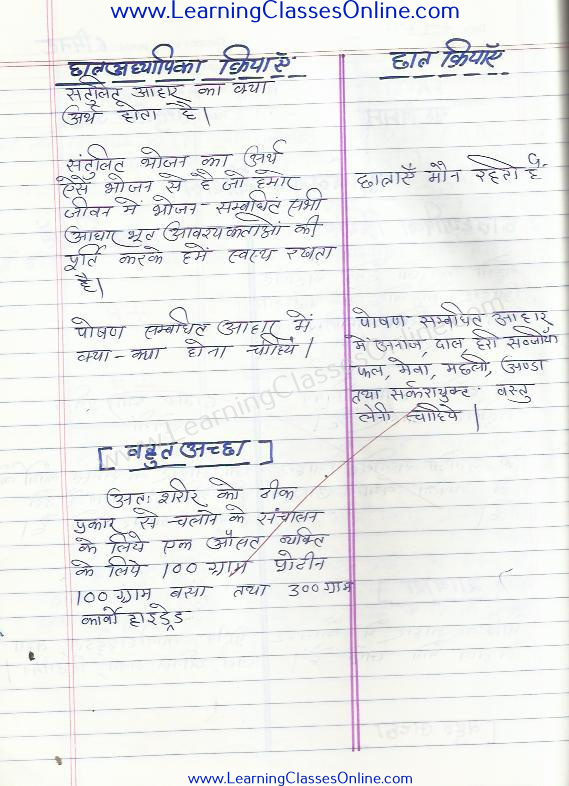 www.LearningClassesOnline.com
छात्रअध्यापिका क्रियाएँ
संतुलित आहार का क्या
अर्थ होता है।
संतुलित भोजन का अर्थ
ऐसे भोजन से है जो हमारे
जीवन में भोजन-सम्बंधित सभी
आधार भूत आवश्यकताओं की
पूर्ति करके हमें स्वस्थ रखता
है।
पोषण सम्बंधित आहार में
क्या-क्या होना चाहिये।
[बहुत अच्छा]
अतः शरीर को ठीक
प्रकार से चलाने के संचालन
के लिये एक औसत व्यक्ति
के लिये 100 ग्राम प्रोटीन
100 ग्राम वसा तथा 300 ग्राम
कार्बो हाइड्रेड
छात्र क्रियाएँ
छात्राएँ मौन रहती है
पोषण सम्बंधित आहार
में अनाज, दाल हरी सब्जीयाँ
फल, मेवा, मछली, अण्डा
तथा सर्करायुक्त वस्तु
लेनी चाहिये।
www.LearningClassesOnline.com
www.LearningClassesOnline.com